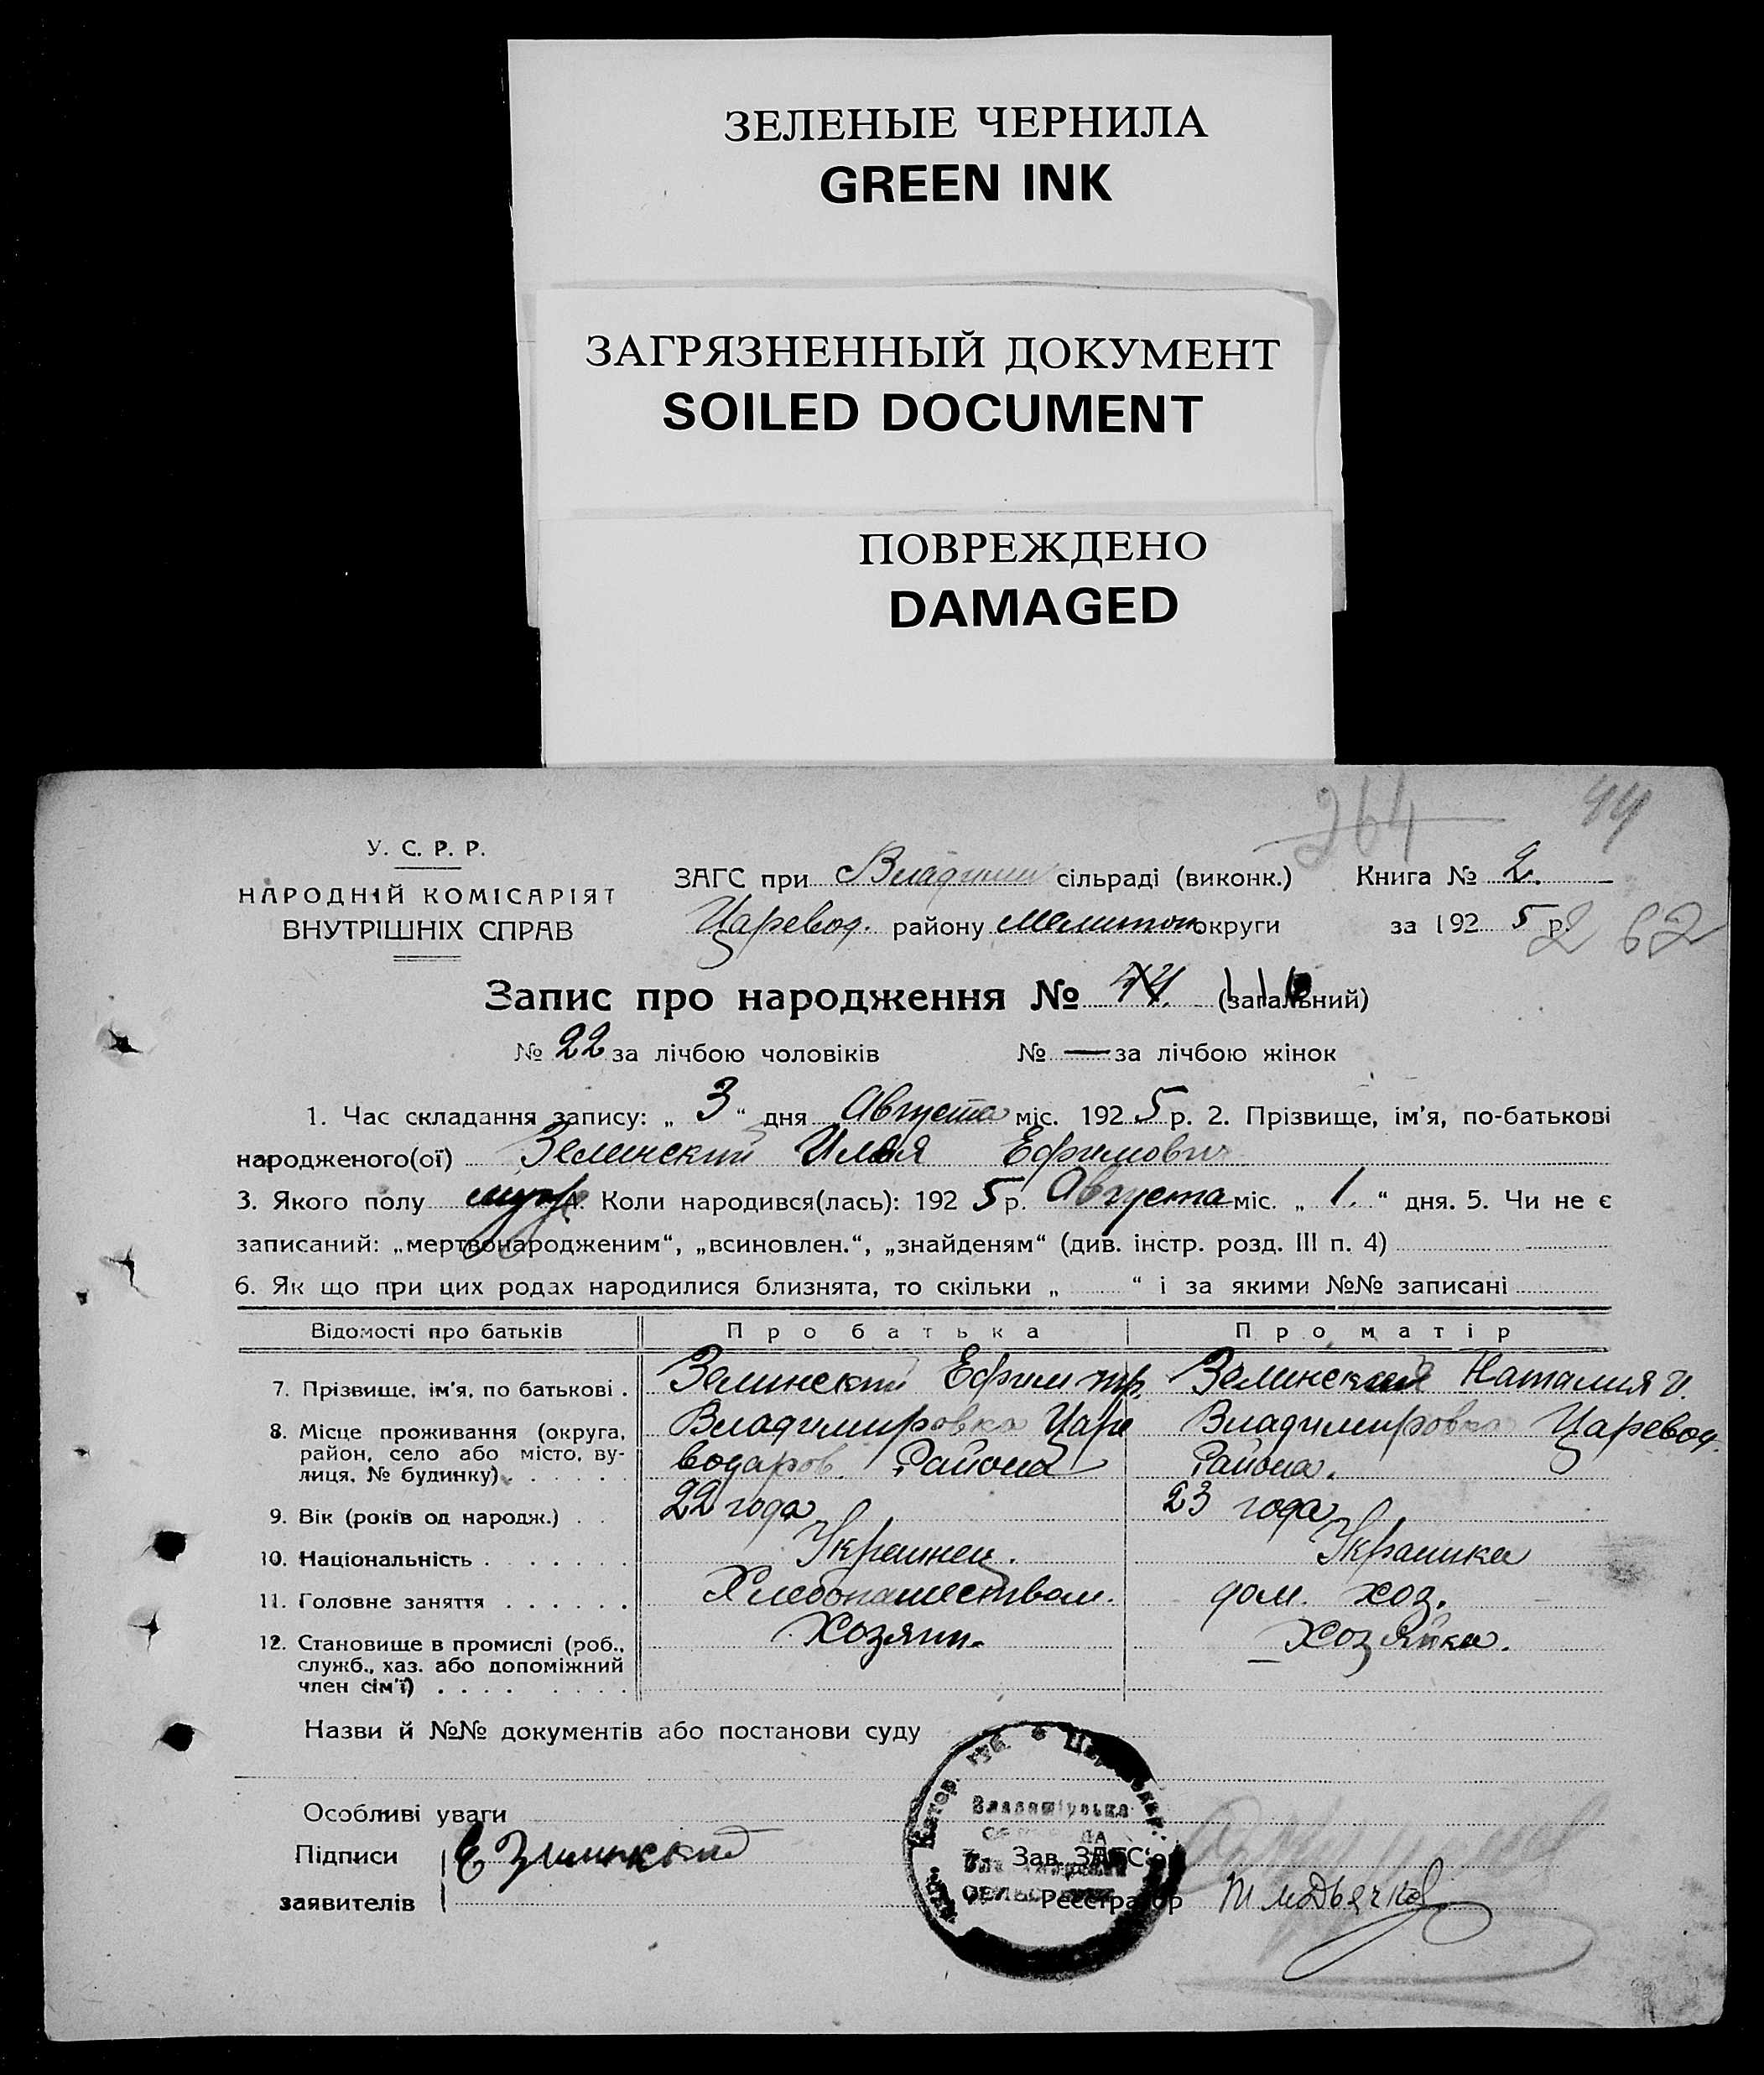 ЗЕЛЕНЫЕ ЧЕРНИЛА
GREEN INK
ЗАГРЯЗНЕННЫЙ ДОКУМЕНТ
SOILED DOCUMENT
ПОВРЕЖДЕНО
DAMAGED
264 44
У. С. Р. Р.
НАРОДНІЙ КОМІСАРІЯТ
ВНУТРІШНІХ СПРАВ
ЗАГС при Владими сільраді (виконк.) Книга № 2.
Царевод. району Мелитоп округи за 1925 р. 262
Запис про народження № 44. 116 (загальний)
№ 22 за лічбою чоловіків № — за лічбою жінок
1. Час складання запису: „ 3 “ дня Августа міс. 1925 р. 2. Прізвище, ім'я, по-батькові
народженого(ої) Зелинский Илья Ефимович
3. Якого полу муж 4. Коли народився(лась): 1925 р. Августа міс. „ 1. “ дня. 5. Чи не є
записаний: „мертвонародженим“, „всиновлен.“, „знайденям“ (див. інстр. розд. III п. 4)
6. Як що при цих родах народилися близнята, то скільки „ “ і за якими №№ записані
Відомості про батьків Про батька Про матір
7. Прізвище, ім'я, по батькові . Зелинский Ефим Зелинская Наталия И.
8. Місце проживання (округа, район, село або місто, вулиця, № будинку) Владимировка Царе Владимировка Царевод.
водаров. Района Района.
9. Вік (років од народж.) . . 22 года 23 года
10. Національність . . . . . . . Украинец. Украинка
11. Головне заняття . . . . . . Хлебопашеством. дом. хоз.
12. Становище в промислі (роб., служб., хаз. або допоміжний член сім'ї) . . . . Хозяин. Хозяйка.
Назви й №№ документів або постанови суду
Особливі уваги
Підписи Е Зилинский Зав. ЗАГС'ом
заявителів Реєстратор